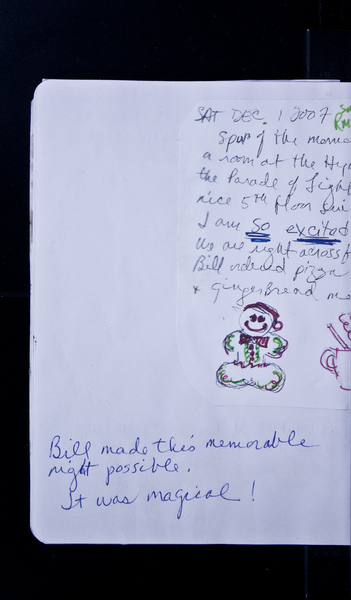 SAT DEC. 1 2007
Spur of the mome
a room at the Hy
the Parade of Light
nice 5th floor Sui
I am So excited
We are right across f
Bill ordered pizza
+ gingerbread me
Bill made this memorable
night possible.
It was magical!